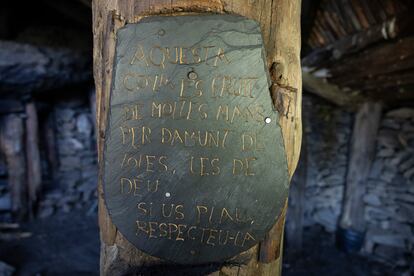 AQUESTA
COVA ÉS FRUIT
DE MOLTES MANS
PER DAMUNT DE
TOTES, LES DE
DÉU.
SI US PLAU,
RESPECTEU-LA